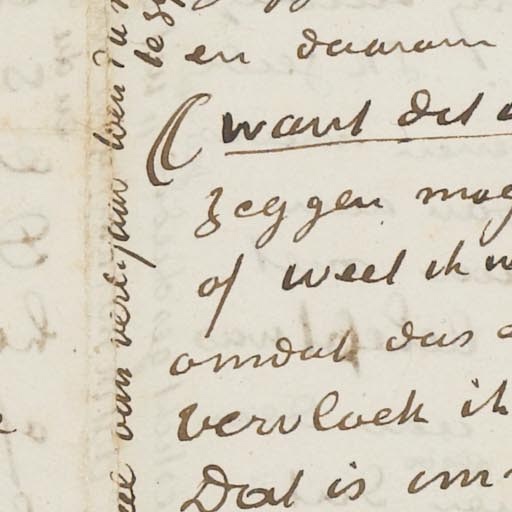 en daarom
(want dit
zeggen mag
of weet ik
omdat dus
vervloek ik
Dat is im
van verlejaar wen
te